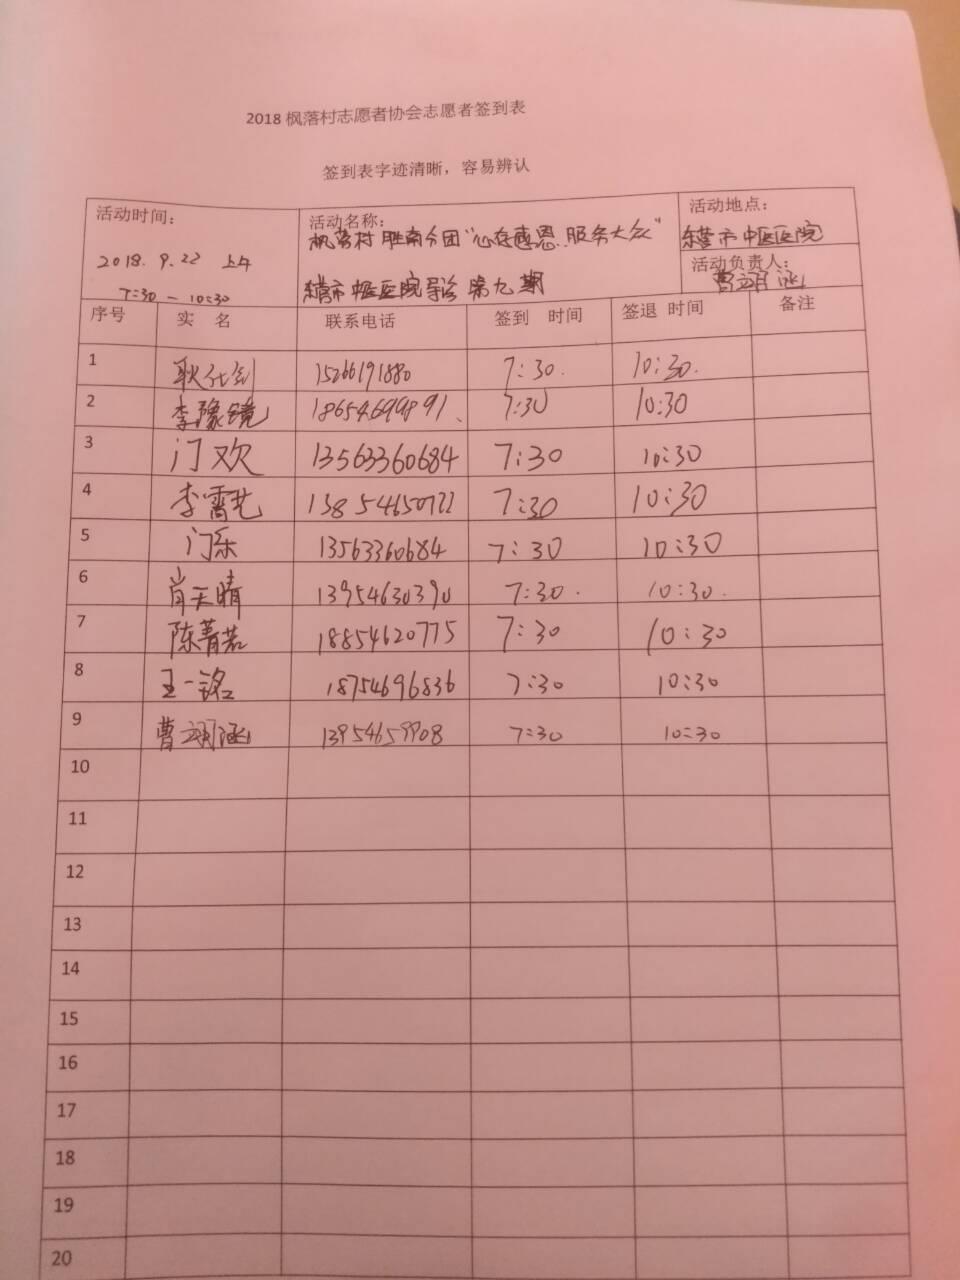 2018 枫落村志愿者协会志愿者签到表
签到表字迹清晰，容易辨认
活动时间：
2018. 9. 22 上午
7:30 — 10:30
活动名称：
枫落村 胜南分团“心存感恩.服务大众”
东营市中医医院导诊 第九期
活动地点：
东营市中医医院
活动负责人：
曹翊涵
序号 实 名 联系电话 签到 时间 签退 时间 备注
1 15266191880 7:30. 10:30.
2 李豫镜 18654699891、 7:30 10:30
3 门欢 13563360684 7:30 10:30
4 李霄艺 13854650722 7:30 10:30
5 门乐 13563360684 7:30 10:30
6 肖天晴 13954630390 7:30. 10:30.
7 陈菁若 18854620775 7:30 10:30
8 王一铭 18754696836 7:30 10:30
9 曹翊涵 13954659908 7:30 10:30
10
11
12
13
14
15
16
17
18
19
20